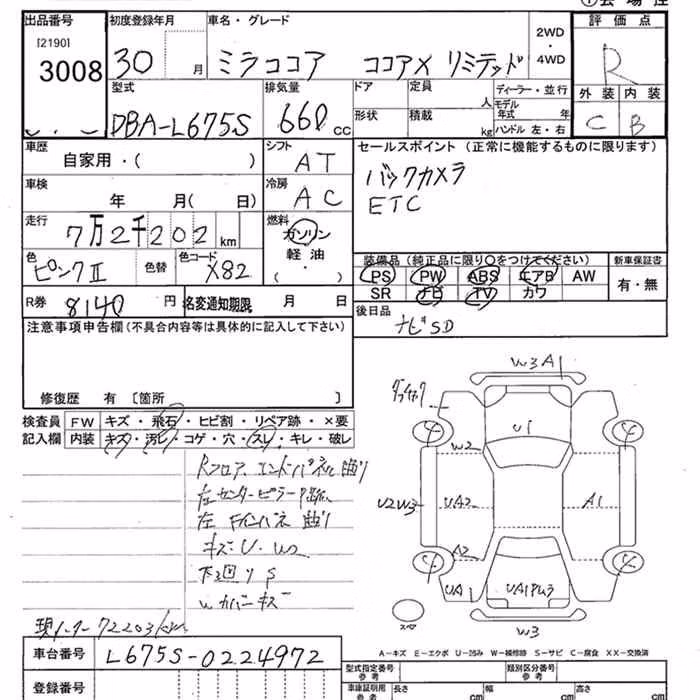 出品番号
[2190]
3008
初度登録年月
30 月
車名・グレード
ミラココア ココアX リミテッド
2WD
・
4WD
評価点
R
外装 内装
C B
型式
DBA-L675S
排気量
660 cc
ドア
形状
定員 人
積載 kg
ディーラー・並行
モデル年式 年
ハンドル 左・右
車歴
自家用・( )
シフト
AT
セールスポイント (正常に機能するものに限ります)
バックカメラ
ETC
車検
年 月( 日)
冷房
AC
走行
7万2千202 km
燃料
ガソリン
軽油
( ・ )
色
ピンクII
色替
色コード
X82
装備品 (純正品に限り○をつけてください)
PS PW ABS エアB AW
SR ナビ TV カワ
新車保証書
有・無
R券 8140 円
名変通知期限 月 日
後日品
ナビSD
注意事項申告欄(不具合内容等は具体的に記入して下さい)
修復歴 有 [箇所 ]
検査員記入欄
FW キズ・飛石・ヒビ割・リペア跡・×要
内装 キズ・汚レ・コゲ・穴・スレ・キレ・破レ
Rフロア エンドパネル曲り
左センターピラー
左 曲り
キズ・U・U2
下回りS
Wカバーキズ
W3 A1
U1
W2
U2W3
UA2
A1
A2
UA1
W3
スペア
A-キズ E-エクボ U-凹み W-補修跡 S-サビ C-腐食 XX-交換済
72203km
車台番号
L675S-0224972
登録番号
型式指定番号
参考
類別区分番号
参考
車庫証明用
参考
長さ cm
幅 cm
高さ cm